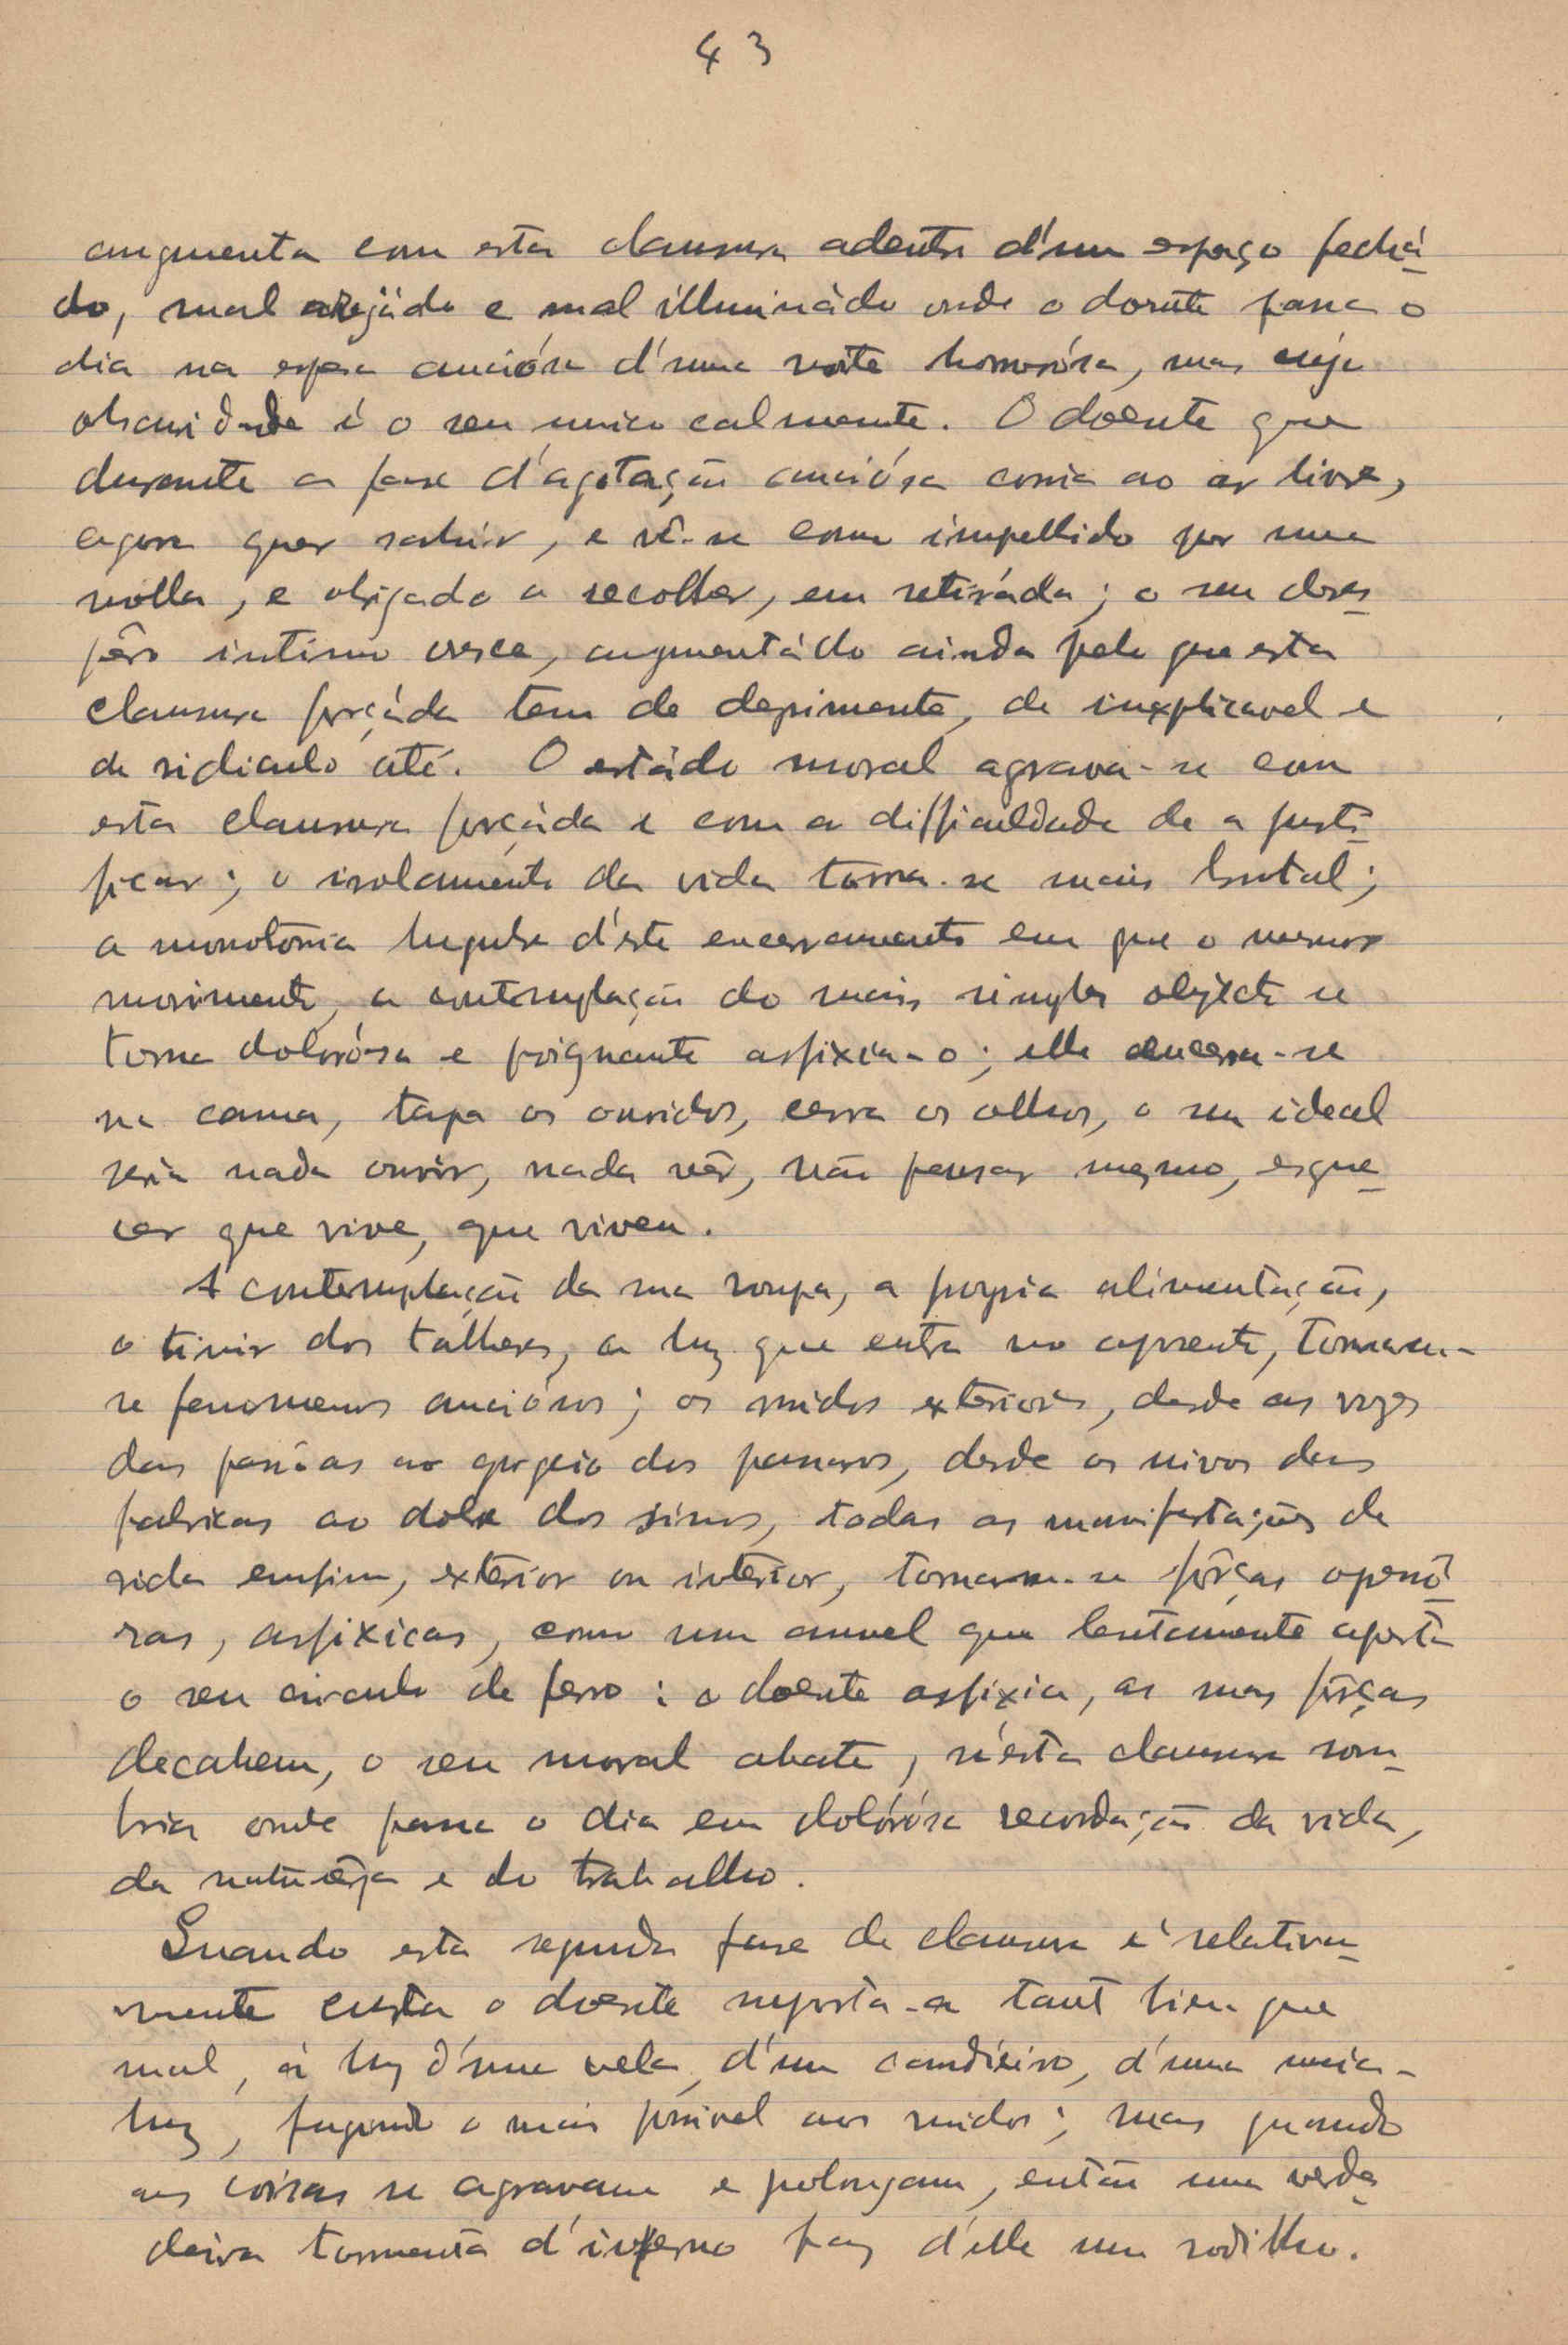 43
augmenta com esta clausura adentro d'um espaço fechá-
do, mal arejádo e mal illuminádo onde o doente passa o
dia na espera anciósa d'uma noite horrorósa, mas cuja
obscuridade é o seu unico calmante. O doente que
durante a fase d'agitação anciósa corria ao ar livre,
agora quer sahir, e vê-se como impellido por uma
molla, e obrigado a recolher, em retiráda; o seu deses-
pêro intimo cresce, augmentádo ainda pelo que esta
clausura forçáda tem de deprimente, de inexplicavel e
de ridiculo até. O estádo moral agrava-se com
esta clausura forçáda e com a difficuldade de a justi-
ficar; o isolamento da vida torna-se mais brutal;
a monotonia lugubre d'este encerramento em que o menor
movimento, a contemplação do mais simples objecto se
torna dolorósa e poignante asfixia-o; elle encerra-se
na cama, tapa os ouvidos, cerra os olhos, o seu ideal
seria nada ouvir, nada vêr, não pensar mesmo, esque-
cer que vive, que viveu.
A contemplação da sua roupa, a propria alimentação,
o tinir dos talheres, a luz que entra no aposento, tornaram-
se fenomenos anciósos; os ruidos exteriores, desde as vozes
das pessôas ao gorgeio dos passaros, desde os uivos das
fabricas ao dobre dos sinos, todas as manifestações de
vida emfim, exterior ou interior, tornaram-se fôrças opressô-
ras, asfixicas, como um annel que lentamente aperta
o seu circulo de ferro: o doente asfixia, as suas fôrças
decahem, o seu moral abate, n'esta clausura som-
bria onde passa o dia em dolórósa recordação da vida,
da naturêza e do trabalho.
Quando esta segunda fase de clausura é relativa-
mente curta o doente suporta-a tant bien que
mal, á luz d'uma vela, d'um candieiro, d'uma meia-
luz, fugindo o mais possivel aos ruidos; mas quando
as coisas se agravam e prolongam, então uma verda-
deira tormenta d'inferno faz d'elle um rodilho.